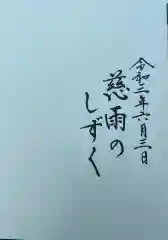 令和二年六月三日
慈雨の
しずく